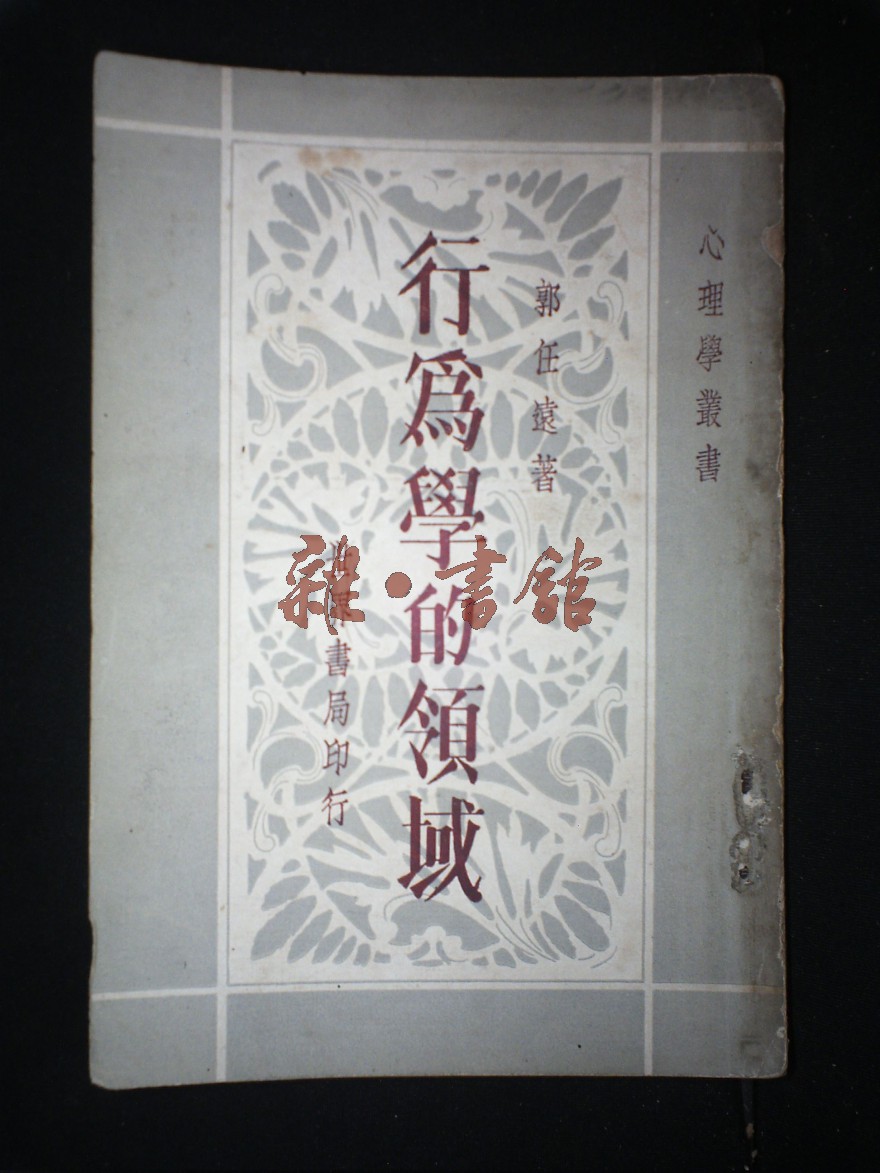 心理學叢書
郭任遠著
行為學的領域
世界書局印行
雜·書館